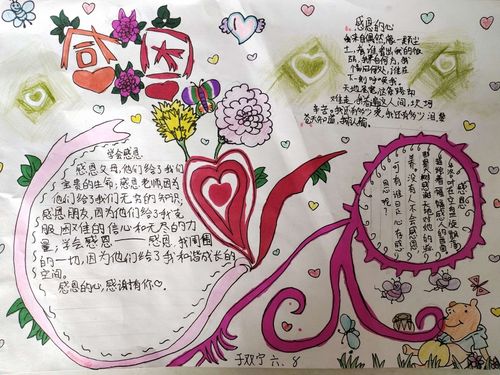 感恩
感恩的心
我来自偶然,像一颗尘
土,有谁看出我的脆
弱,我来自何方,我
情归何处,谁在
下一刻呼唤我,
天地虽宽,这条路却
难走,我看遍这人间,坎坷
辛苦,我还有多少爱,我还有多少泪,要
苍天知道,我不认输。
学会感恩
感恩父母,他们给了我们
宝贵的生命;感恩老师,因为
他们给了我们无穷的知识;
感恩朋友,因为他们给了我克
服困难的信心和无尽的力
量。学会感恩——感恩我周围
的一切,因为他们给了我和谐成长的
空间。
感恩的心,感谢有你。
感恩
养,没有人不会感恩
可有谁日正心存感
恩呢?
于双宁 六、8